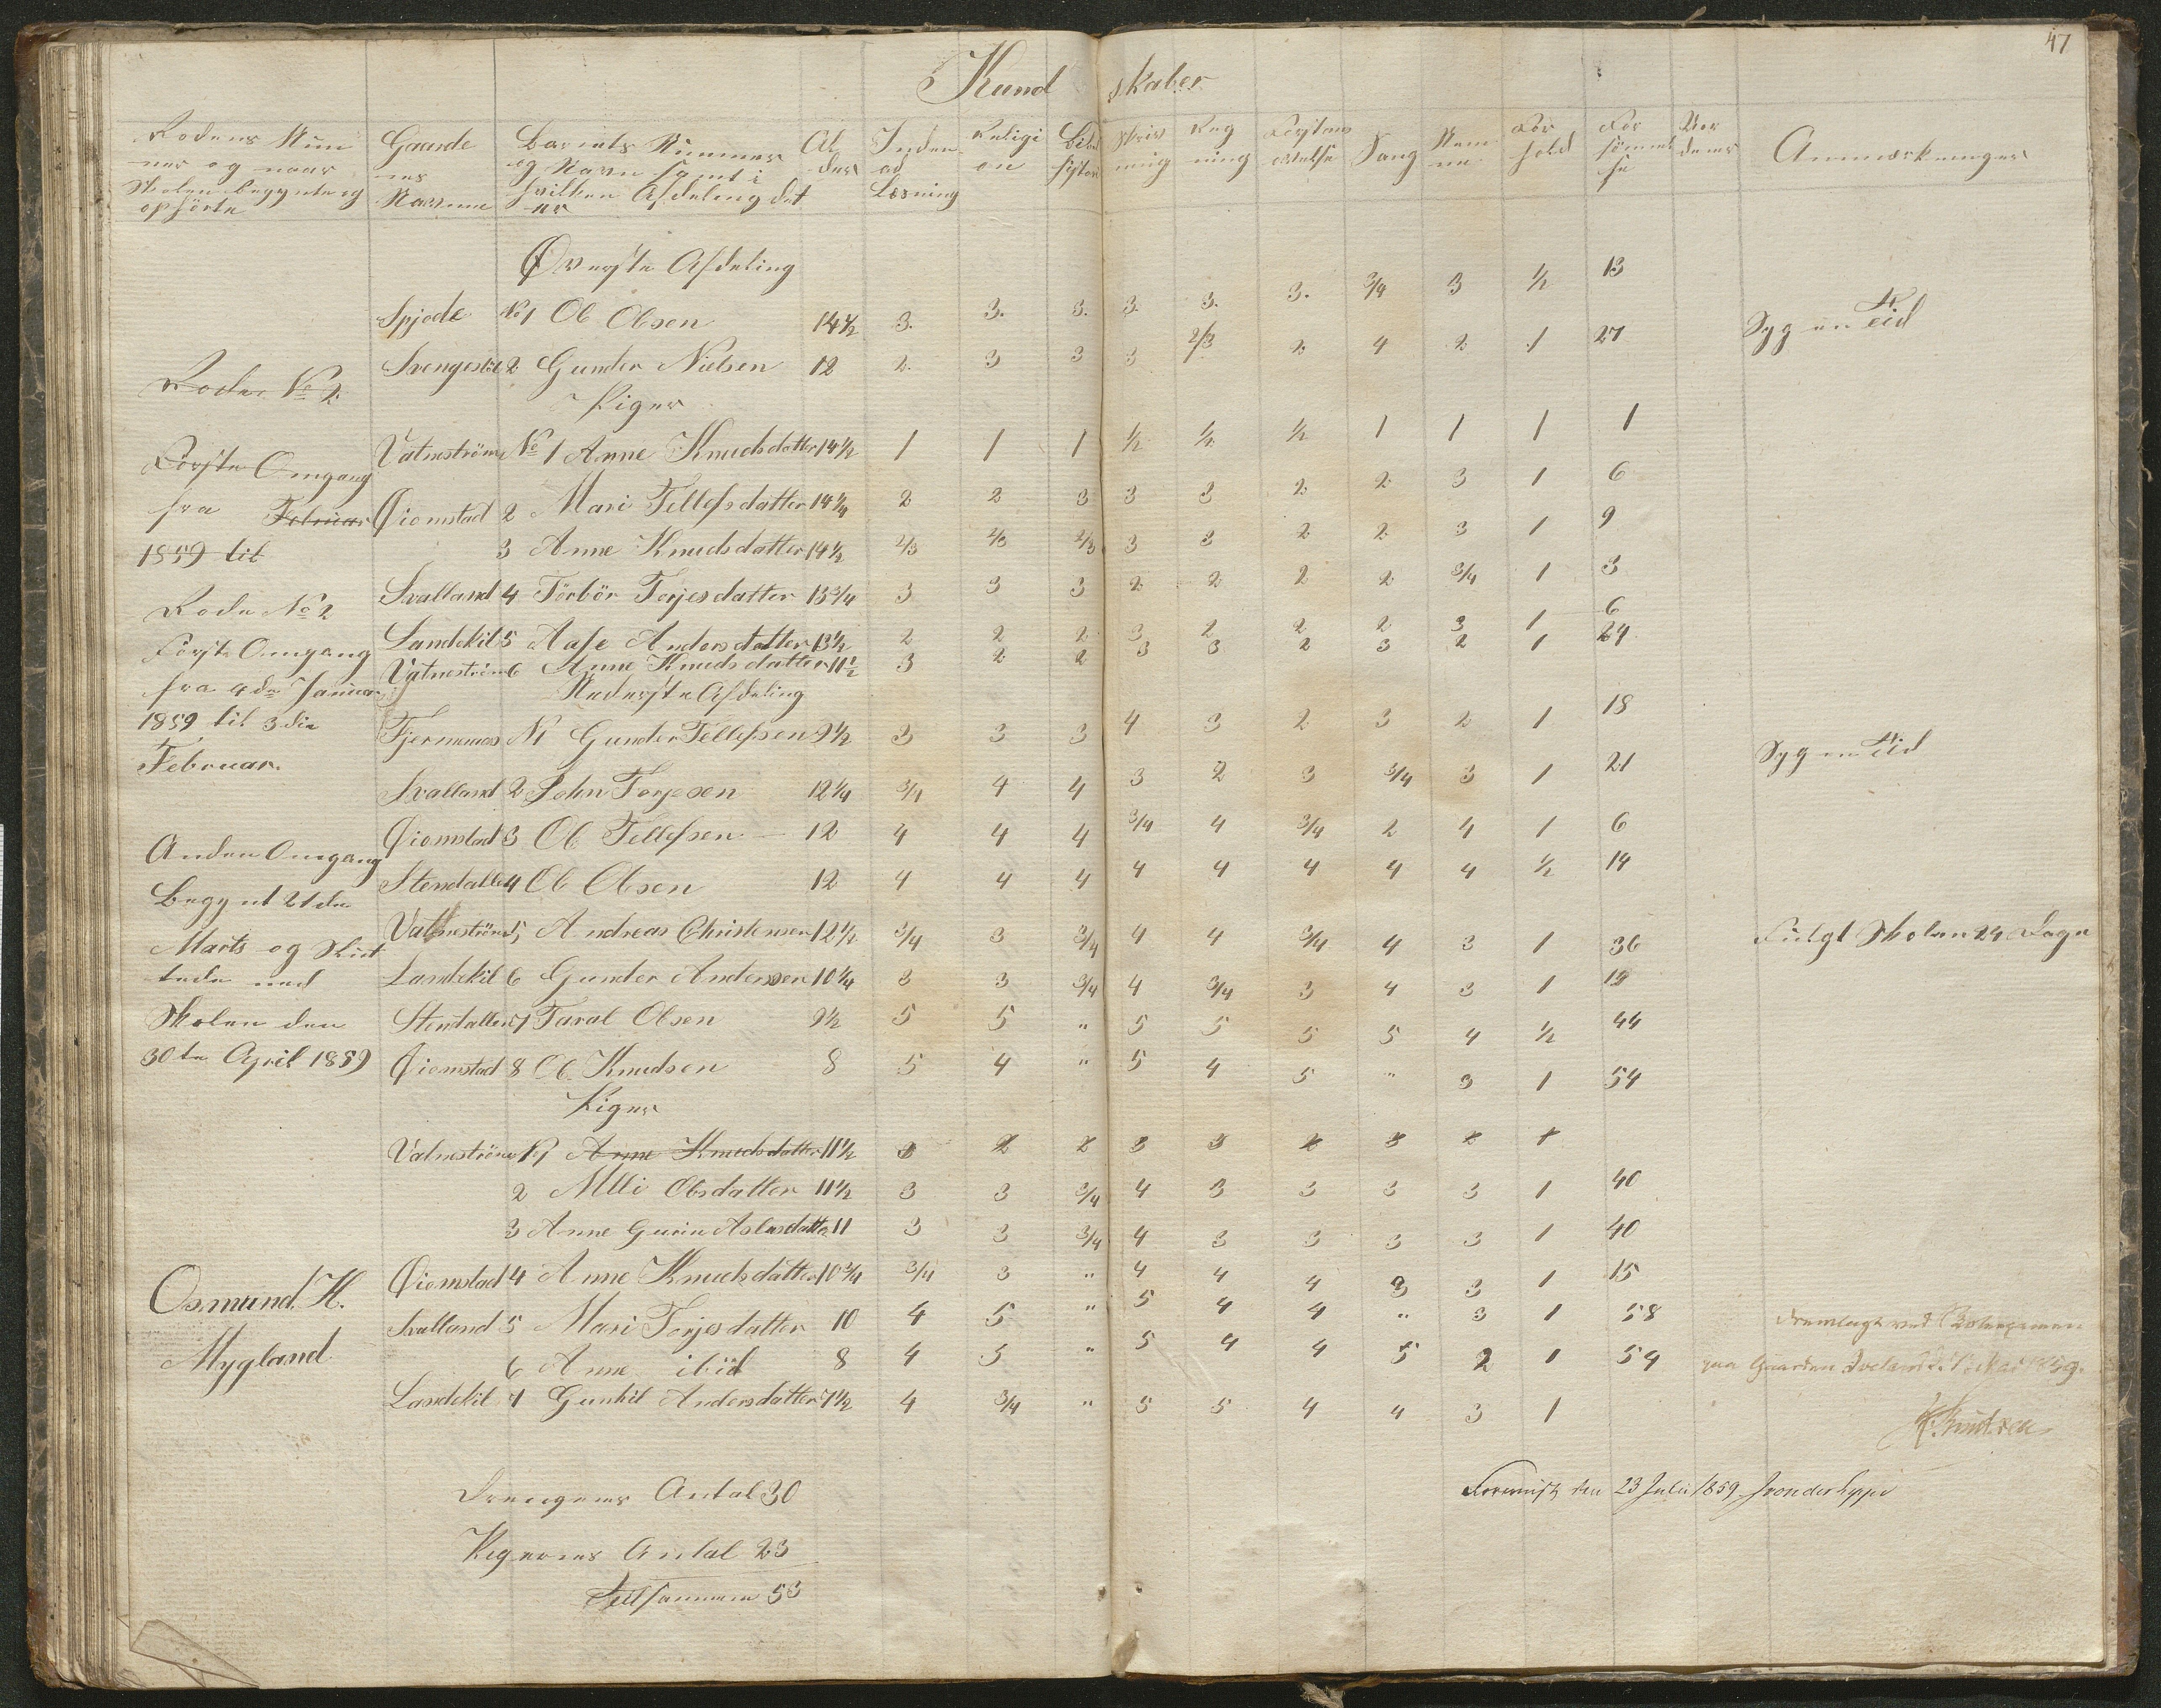 47
Kundskaber
Rodens Num
mer og naar
Skolen begynte og
ophörte
Gaarde
nes
Navne
Barnets Nummer
og Navn samt i
hvilken Afdeling det
er
Al
der
Inden
ad
Læsning
Religi
on
Bibel
histori
Skriv
ning
Reg
ning
Forstan
Sang
Nem
me
For
hold
For
sömmel
se
Anmærkninger
Øverste Afdeling
Spjode No 1 Ole Olsen 14½ 3. 3. 3. 3. 3. 3. 3/4 3 ½ 13 Syg en Tid
Svengestöl 2 Gunder Nielsen 12 2 3 3 3 2/3 2 4 2 1 27
Rode No 2
Piger
Vatneström No 1 Anne Knudsdatter 14½ 1 1 1 ½ ½ ½ 1 1 1 1
Første Omgang
fra Februar
1859 til
Øiomstad 2 Mari Tellefsdatter 14¼ 2 2 3 3 3 2 2 3 1 6
3 Anne Knudsdatter 14½ 2/3 2/3 2/3 3 3 2 2 3 1 9
Svalland 4 Törbör Torjesdatter 13¾ 3 3 3 2 2 2 2 3/4 1 3
Landekil 5 Aase Andersdatter 13½ 2 2 2 3 2 2 2 3 1 6
Vatneström 6 Anne Knudsdatter 11½ 3 2 2 3 3 2 3 2 1 24
Rode No 2
Første Omgang
fra 4de Januar
1859 til 3die
Februar.
Nederste Afdeling
Fjermenos N1 Gunder Tellefsen 9½ 3 3 3 4 3 2 3 2 1 18
Svalland 2 John Torjesen 12¼ 3/4 4 4 3 2 3 3/4 3 1 21 Syg en Tid
Øiomstad 3 Ole Tellefsen 12 4 4 4 3/4 4 3/4 2 4 1 6
Stendallen 4 Ole Olsen 12 4 4 4 4 4 4 4 4 ½ 14
Vatneström 5 Andreas Christensen 12½ 3/4 3 3/4 4 4 3/4 4 3 1 36 Fulgt Skolen 24 Dage
Landekil 6 Gunder Andersen 10¼ 3 3 3/4 4 3/4 3 4 3 1 19
Stendallen 7 Taral Olsen 9½ 5 5 " 5 5 5 5 4 ½ 44
Øiomstad 8 Ole Knudsen 8 5 4 " 5 4 5 " 3 1 54
Anden Omgang
Begynt 21de
Marts og Slut
tede med
Skolen den
30te April 1859
Piger
Vatneström No 1 Anne Knudsdatter 11½ 3 2 2 3 3 2 3 2 1
2 Alli Olsdatter 11½ 3 3 3/4 4 3 3 3 3 1 40
3 Anne Gurine Aslasdatter 11 3 3 3/4 4 3 3 3 3 1 40
Øiomstad 4 Anne Knudsdatter 10¾ 3/4 3 " 4 4 4 3 3 1 15
Svalland 5 Mari Torjesdatter 10 4 5 " 5 4 4 " 3 1 58
6 Anne ibid 8 4 5 " 5 4 4 5 2 1 54
Landekil 7 Gunhil Andersdatter 7½ 4 3/4 " 5 5 4 4 3 1
Osmund K.
Mygland
Fremlagt ved
paa Gaarden Iveland 1859.
K. Knudsen
Drengenes Antal 30
Pigernes Antal 23
Tillsammen 53
Foreviist den 23 Juli 1859